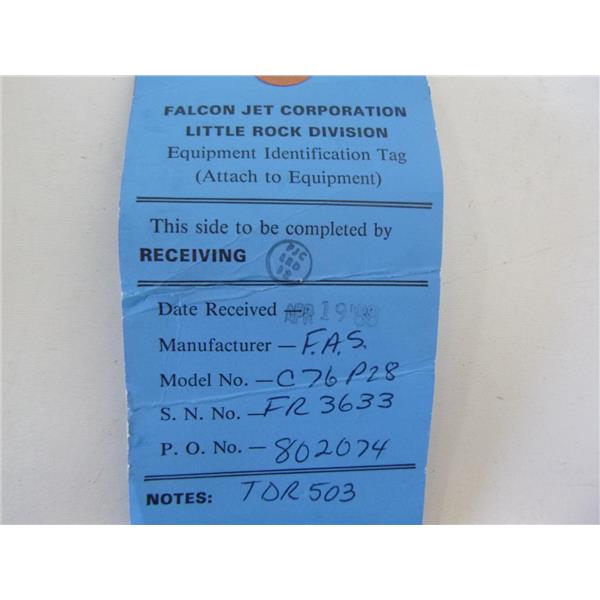 FALCON JET CORPORATION
LITTLE ROCK DIVISION
Equipment Identification Tag
(Attach to Equipment)
This side to be completed by
RECEIVING
FJC
LRD
Date Received — APR 19 '88
Manufacturer — F.A.S.
Model No. — C76P28
S. N. No. — FR3633
P. O. No. — 802074
NOTES: TDR503